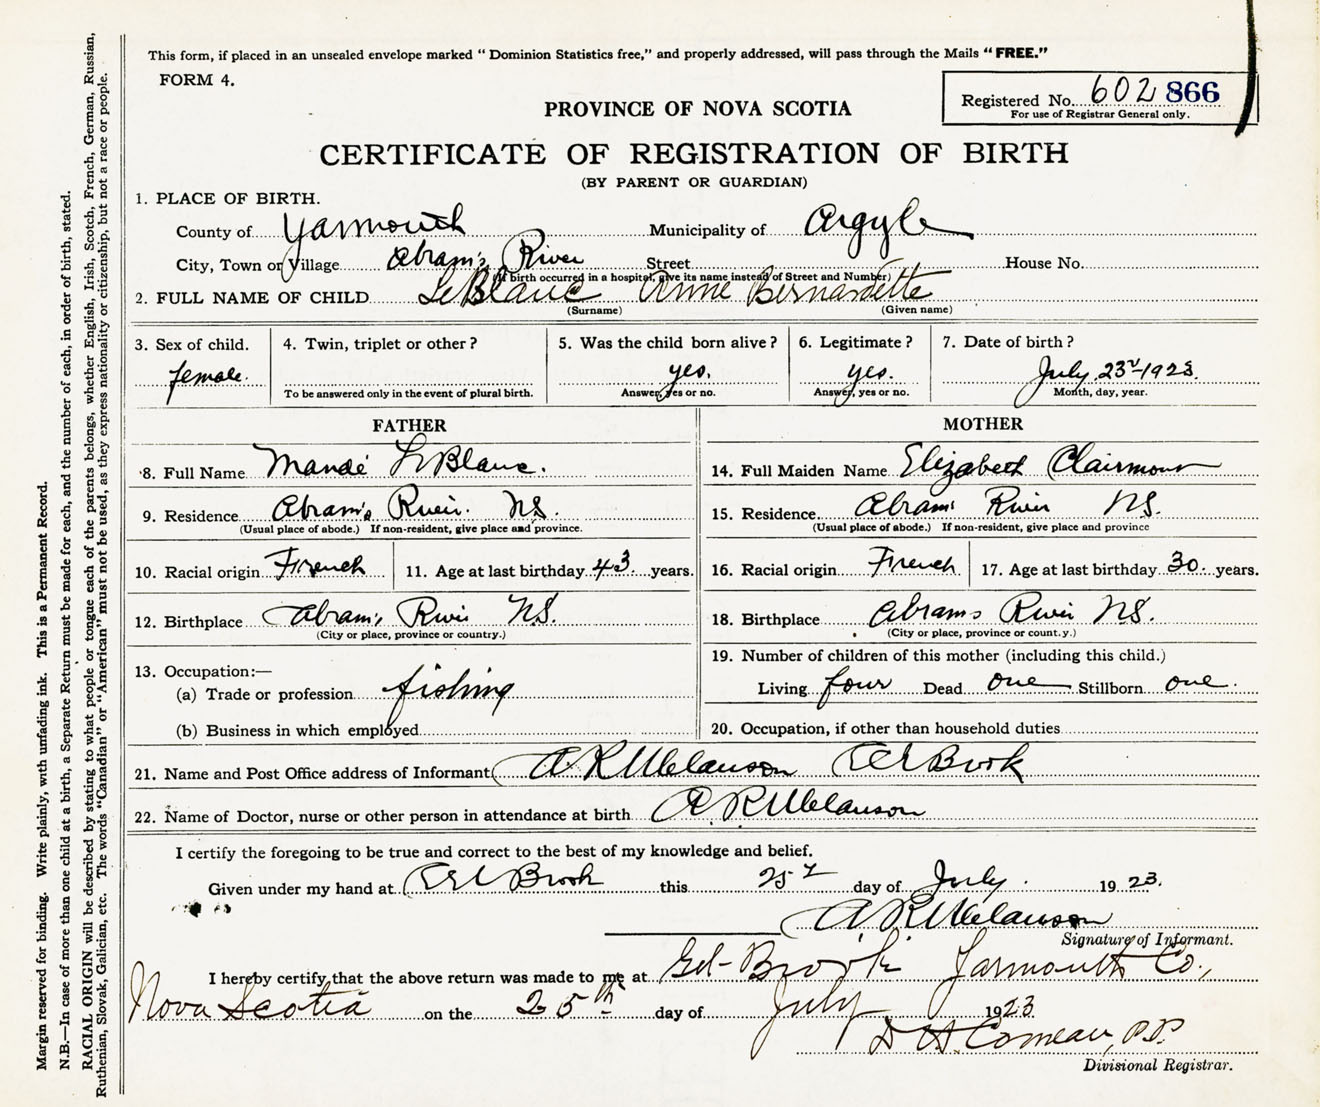 This form, if placed in an unsealed envelope marked "Dominion Statistics free," and properly addressed, will pass through the Mails "FREE."
FORM 4.
Registered No. 602 866
For use of Registrar General only.
PROVINCE OF NOVA SCOTIA
CERTIFICATE OF REGISTRATION OF BIRTH
(BY PARENT OR GUARDIAN)
1. PLACE OF BIRTH.
County of Yarmouth Municipality of Argyle
City, Town or Village Abram's River Street House No.
(If birth occurred in a hospital, give its name instead of Street and Number)
2. FULL NAME OF CHILD LeBlanc Anne Bernardette
(Surname) (Given name)
3. Sex of child. 4. Twin, triplet or other? 5. Was the child born alive? 6. Legitimate? 7. Date of birth?
female. yes. yes. July 23rd 1923.
To be answered only in the event of plural birth. Answer, yes or no. Answer, yes or no. Month, day, year.
FATHER MOTHER
8. Full Name Mandé LeBlanc. 14. Full Maiden Name Elizabeth Clairmont
9. Residence Abram's River. N.S. 15. Residence Abram's River N.S.
(Usual place of abode.) If non-resident, give place and province. (Usual place of abode.) If non-resident, give place and province
10. Racial origin French 11. Age at last birthday 43 years. 16. Racial origin French 17. Age at last birthday 30 years.
12. Birthplace Abram's River N.S. 18. Birthplace Abrams River N.S.
(City or place, province or country.) (City or place, province or count.y.)
13. Occupation:— 19. Number of children of this mother (including this child.)
(a) Trade or profession fishing Living four Dead one Stillborn one.
(b) Business in which employed 20. Occupation, if other than household duties
21. Name and Post Office address of Informant A R Melanson Eel Brook
22. Name of Doctor, nurse or other person in attendance at birth A. R. Melanson
I certify the foregoing to be true and correct to the best of my knowledge and belief.
Given under my hand at Eel Brook this 25 day of July. 1923.
A. R. Melanson
Signature of Informant.
I hereby certify that the above return was made to me at Eel-Brook Yarmouth Co.,
Nova Scotia on the 25th day of July 1923
D H. Comeau, P.P.
Divisional Registrar.
Margin reserved for binding. Write plainly, with unfading ink. This is a Permanent Record.
N.B.—In case of more than one child at a birth, a Separate Return must be made for each, and the number of each, in order of birth, stated.
RACIAL ORIGIN will be described by stating to what people or tongue each of the parents belongs, whether English, Irish, Scotch, French, German, Russian,
Ruthenian, Slovak, Galician, etc. The words "Canadian" or "American" must not be used, as they express nationality or citizenship, but not a race or people.